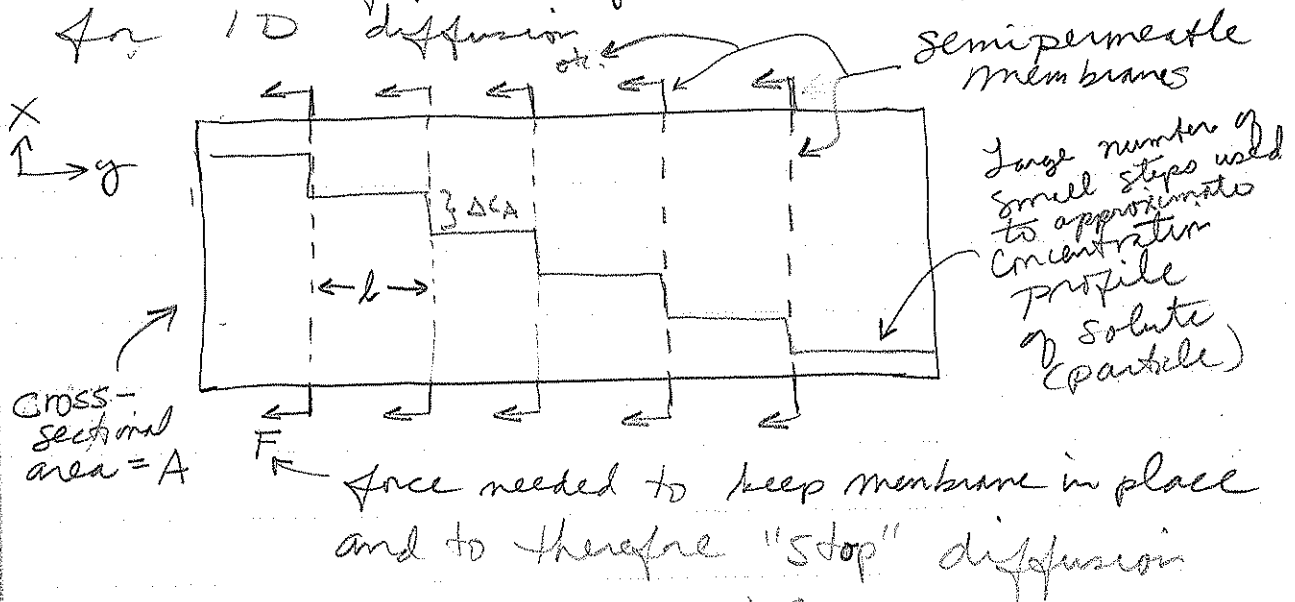 for 1D diffusion
etc.
semipermeable
membranes
X
y
Large number of
small steps used
to approximate
concentration
profile
of solute
(particle)
} ΔCA
b
cross-
sectional
area = A
F
force needed to keep membrane in place
and to therefore "stop" diffusion